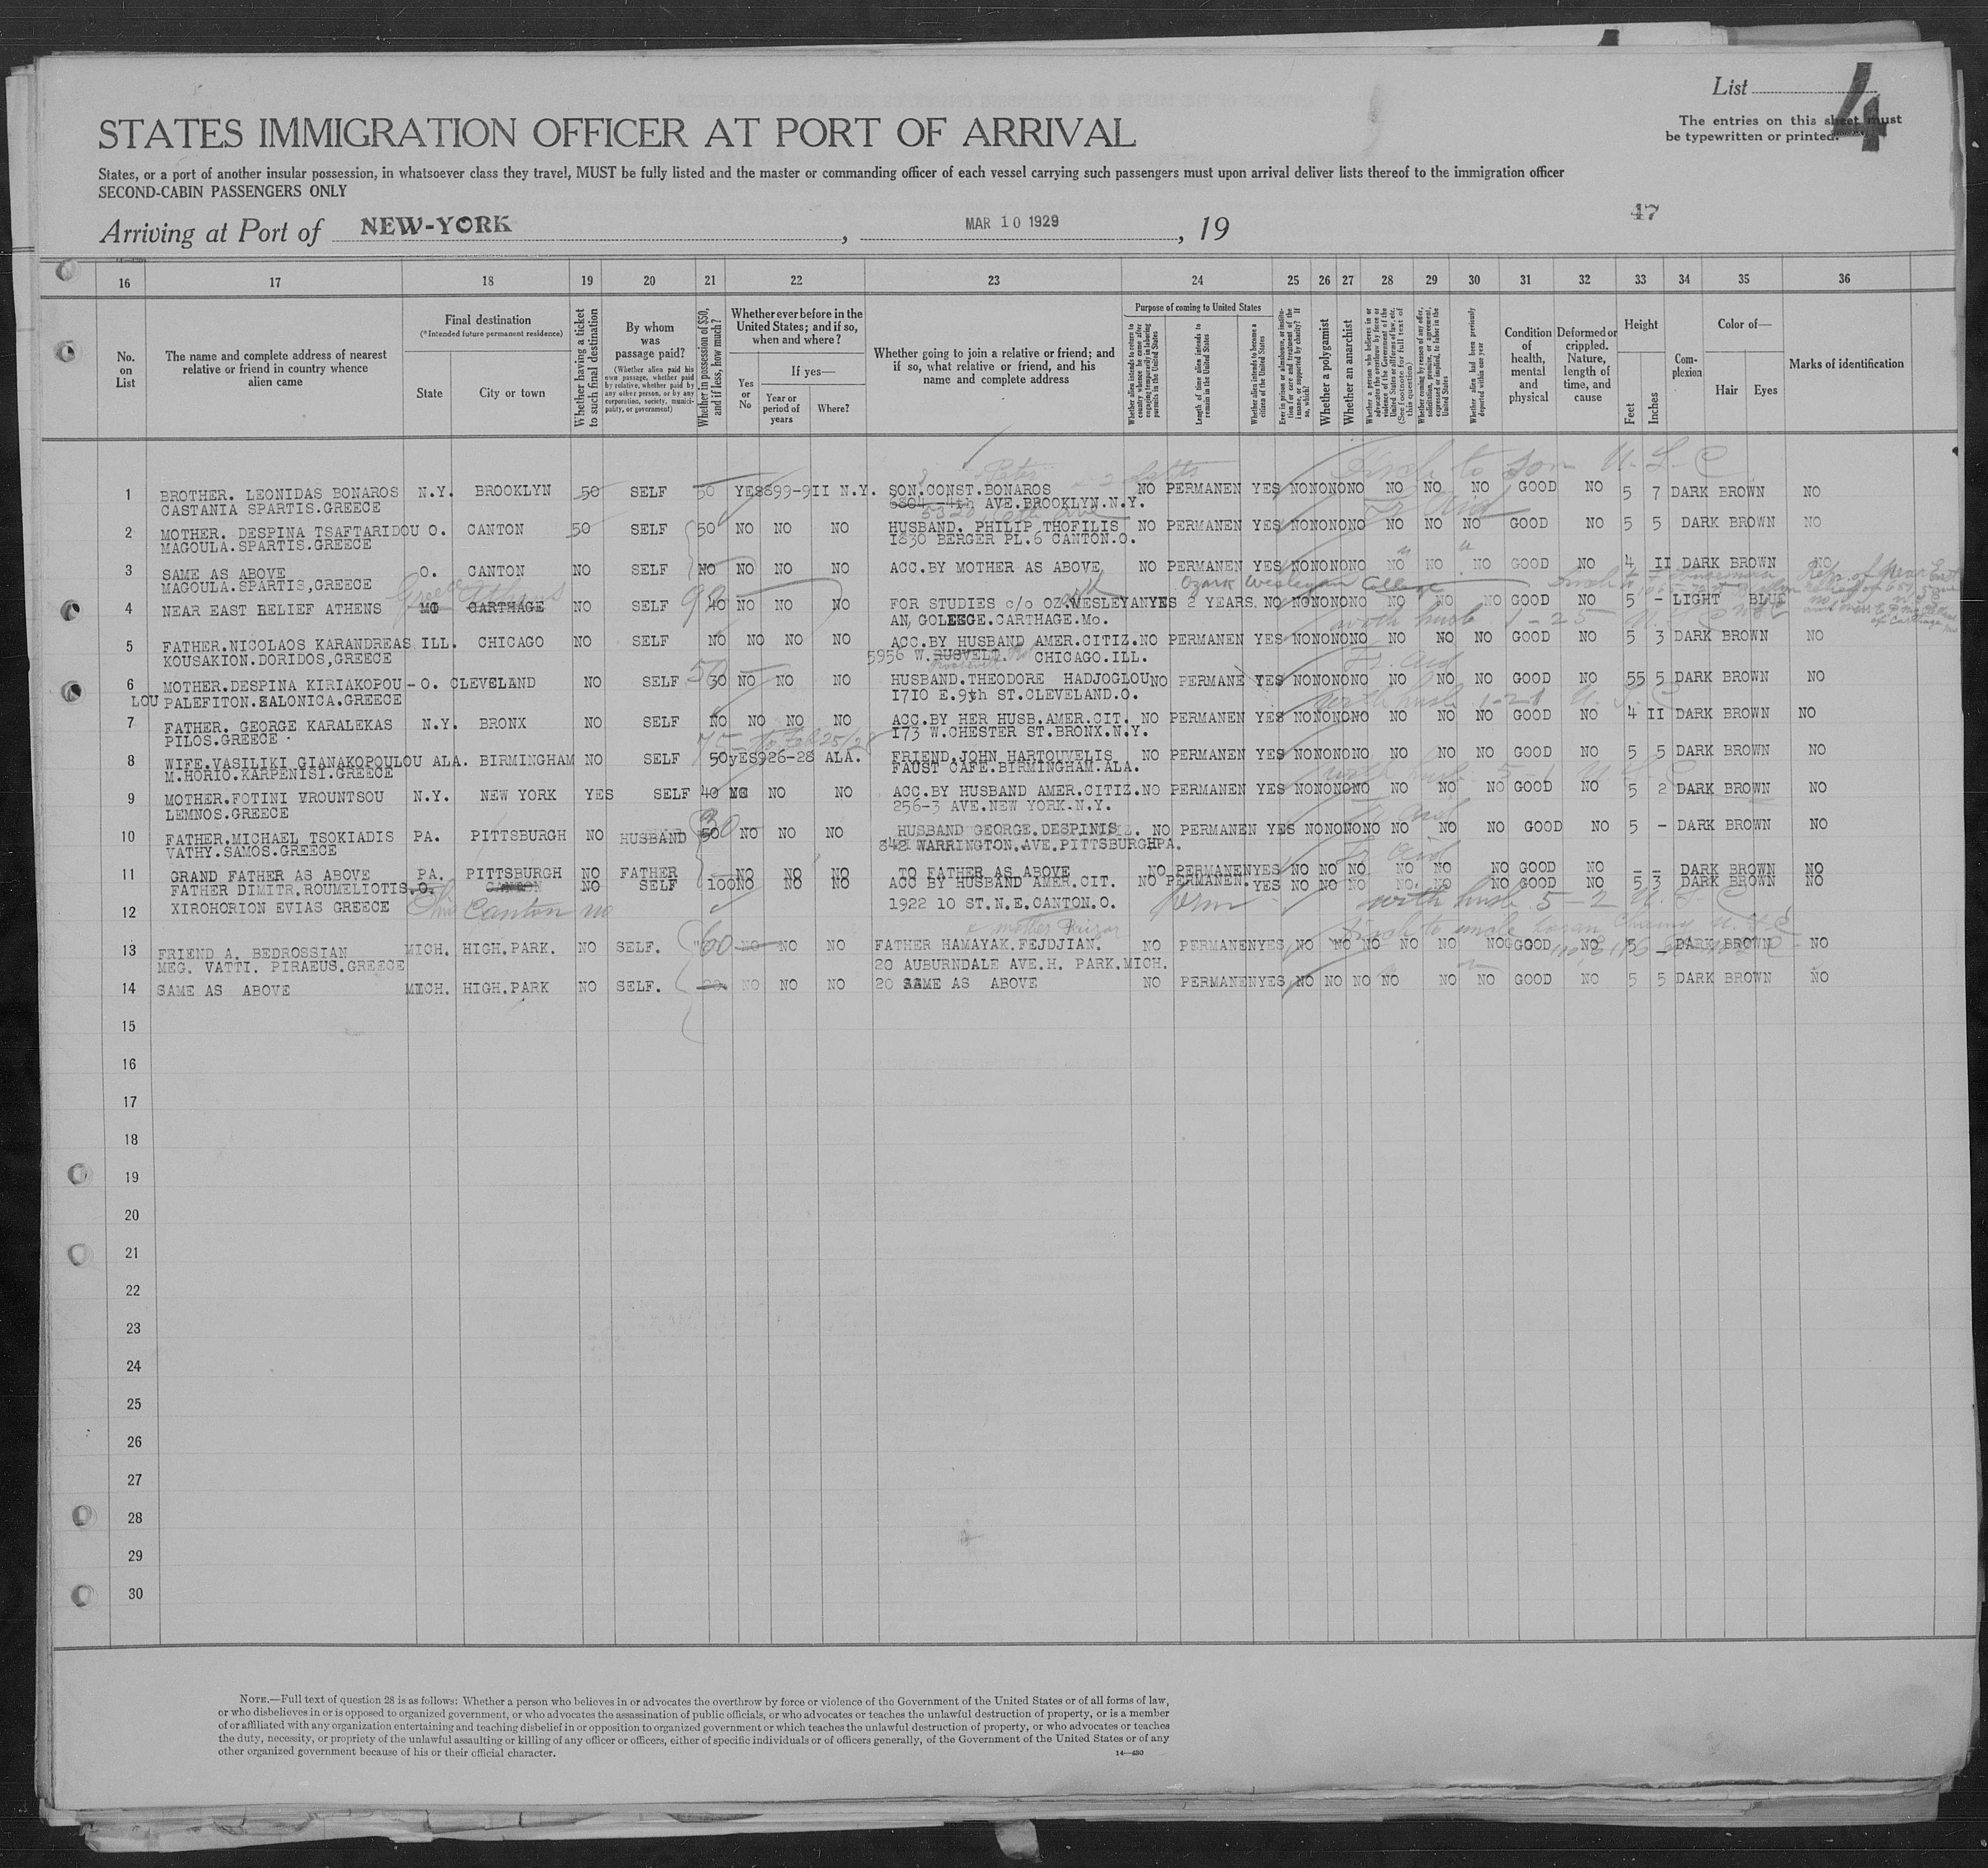 List
4
The entries on this sheet must
be typewritten or printed.
STATES IMMIGRATION OFFICER AT PORT OF ARRIVAL
States, or a port of another insular possession, in whatsoever class they travel, MUST be fully listed and the master or commanding officer of each vessel carrying such passengers must upon arrival deliver lists thereof to the immigration officer
SECOND-CABIN PASSENGERS ONLY
47
Arriving at Port of NEW-YORK, MAR 10 1929, 19
16 17 18 19 20 21 22 23 24 25 26 27 28 29 30 31 32 33 34 35 36
No. on List
The name and complete address of nearest relative or friend in country whence alien came
Final destination
(*Intended future permanent residence)
State
City or town
Whether having a ticket to such final destination
By whom was passage paid?
(Whether alien paid his own passage, whether paid by relative, whether paid by any other person, or by any corporation, society, municipality, or government)
Whether in possession of $50, and if less, how much?
Whether ever before in the United States; and if so, when and where?
Yes or No
If yes—
Year or period of years
Where?
Whether going to join a relative or friend; and if so, what relative or friend, and his name and complete address
Purpose of coming to United States
Whether alien intends to return to country whence he came after engaging temporarily in laboring pursuits in the United States
Length of time alien intends to remain in the United States
Whether alien intends to become a citizen of the United States
Ever in prison or almshouse, or institution for care and treatment of the insane, or supported by charity? If so, which?
Whether a polygamist
Whether an anarchist
Whether a person who believes in or advocates the overthrow by force or violence of the Government of the United States or all forms of law, etc. (See footnote for full text of this question)
Whether coming by reason of any offer, solicitation, promise, or agreement, expressed or implied, to labor in the United States
Whether alien had been previously deported within one year
Condition of health, mental and physical
Deformed or crippled. Nature, length of time, and cause
Height
Feet
Inches
Complexion
Color of—
Hair
Eyes
Marks of identification
1 BROTHER. LEONIDAS BONAROS N.Y. BROOKLYN 50 SELF 50 YES 899-9II N.Y. SON.CONST.BONAROS NO PERMANEN YES NO NO NO NO NO NO NO GOOD NO 5 7 DARK BROWN NO
CASTANIA SPARTIS.GREECE 6864-4th AVE.BROOKLYN.N.Y.
2 MOTHER. DESPINA TSAFTARIDOU O. CANTON 50 SELF 50 NO NO NO HUSBAND. PHILIP THOFILIS NO PERMANEN YES NO NO NO NO NO NO NO GOOD NO 5 5 DARK BROWN NO
MAGOULA.SPARTIS.GREECE I830 BERGER PL.6 CANTON.O.
3 SAME AS ABOVE O. CANTON NO SELF NO NO NO NO ACC.BY MOTHER AS ABOVE NO PERMANEN YES NO NO NO NO NO NO NO GOOD NO 4 II DARK BROWN NO
MAGOULA.SPARTIS,GREECE
Ozark Wesleyan College
4 NEAR EAST RELIEF ATHENS MO CARTHAGE NO SELF 40 NO NO NO FOR STUDIES c/o OZ.WESLEYAN YES 2 YEARS. NO NO NO NO NO NO NO NO GOOD NO 5 - LIGHT BLUE
AN, GOLEEGE.CARTHAGE.Mo.
with husb 1-25
5 FATHER.NICOLAOS KARANDREAS ILL. CHICAGO NO SELF NO NO NO NO ACC.BY HUSBAND AMER.CITIZ. NO PERMANEN YES NO NO NO NO NO NO NO GOOD NO 5 3 DARK BROWN NO
KOUSAKION.DORIDOS,GREECE 5956 W.RUSVELT. CHICAGO.ILL.
6 MOTHER.DESPINA KIRIAKOPOU- O. CLEVELAND NO SELF 50 NO NO NO HUSBAND.THEODORE HADJOGLOU NO PERMANE YES NO NO NO NO NO NO NO GOOD NO 55 5 DARK BROWN NO
LOU PALEFITON.SALONICA.GREECE I7IO E.9th ST.CLEVELAND.O.
7 FATHER. GEORGE KARALEKAS N.Y. BRONX NO SELF NO NO NO NO ACC.BY HER HUSB.AMER.CIT. NO PERMANEN YES NO NO NO NO NO NO NO GOOD NO 4 II DARK BROWN NO
PILOS.GREECE I73 W.CHESTER ST.BRONX.N.Y.
8 WIFE.VASILIKI GIANAKOPOULOU ALA. BIRMINGHAM NO SELF 50 yES 926-28 ALA. FRIEND.JOHN HARTOUVELIS NO PERMANEN YES NO NO NO NO NO NO NO GOOD NO 5 5 DARK BROWN NO
M.HORIO.KARPENISI.GREECE FAUST CAFE.BIRMINGHAM.ALA.
9 MOTHER.FOTINI VROUNTSOU N.Y. NEW YORK YES SELF 40 NO NO NO ACC.BY HUSBAND AMER.CITIZ. NO PERMANEN YES NO NO NO NO NO NO NO GOOD NO 5 2 DARK BROWN NO
LEMNOS.GREECE 256-3 AVE.NEW YORK.N.Y.
10 FATHER.MICHAEL TSOKIADIS PA. PITTSBURGH NO HUSBAND 50 NO NO NO HUSBAND GEORGE.DESPINIS. NO PERMANEN YES NO NO NO NO NO NO NO GOOD NO 5 - DARK BROWN NO
VATHY.SAMOS.GREECE 842 WARRINGTON.AVE.PITTSBURGH PA.
11 GRAND FATHER AS ABOVE PA. PITTSBURGH NO FATHER NO NO NO TO FATHER AS ABOVE NO PERMANEN YES NO NO NO NO NO NO GOOD NO - - DARK BROWN NO
FATHER DIMITR.ROUMELIOTIS. O. CANTON NO SELF 100 NO NO NO ACC BY HUSBAND AMER.CIT. NO PERMANEN. YES NO NO NO NO. NO NO GOOD NO 5 3 DARK BROWN NO
12 XIROHORION EVIAS GREECE Ohio Canton no 1922 10 ST.N.E.CANTON.O. perm with husb 5-2
13 FRIEND A. BEDROSSIAN MICH. HIGH.PARK. NO SELF. 60 NO NO NO FATHER HAMAYAK.FEJDJIAN. NO PERMANEN YES NO NO NO NO NO NO GOOD NO 5 - DARK BROWN NO
MEG. VATTI. PIRAEUS.GREECE 20 AUBURNDALE AVE.H. PARK.MICH.
14 SAME AS ABOVE MICH. HIGH.PARK NO SELF. NO NO NO 20 SAME AS ABOVE NO PERMANEN YES NO NO NO NO NO NO GOOD NO 5 5 DARK BROWN NO
15
16
17
18
19
20
21
22
23
24
25
26
27
28
29
30
NOTE.—Full text of question 28 is as follows: Whether a person who believes in or advocates the overthrow by force or violence of the Government of the United States or of all forms of law,
or who disbelieves in or is opposed to organized government, or who advocates the assassination of public officials, or who advocates or teaches the unlawful destruction of property, or is a member
of or affiliated with any organization entertaining and teaching disbelief in or opposition to organized government or which teaches the unlawful destruction of property, or who advocates or teaches
the duty, necessity, or propriety of the unlawful assaulting or killing of any officer or officers, either of specific individuals or of officers generally, of the Government of the United States or of any
other organized government because of his or their official character.
14—430